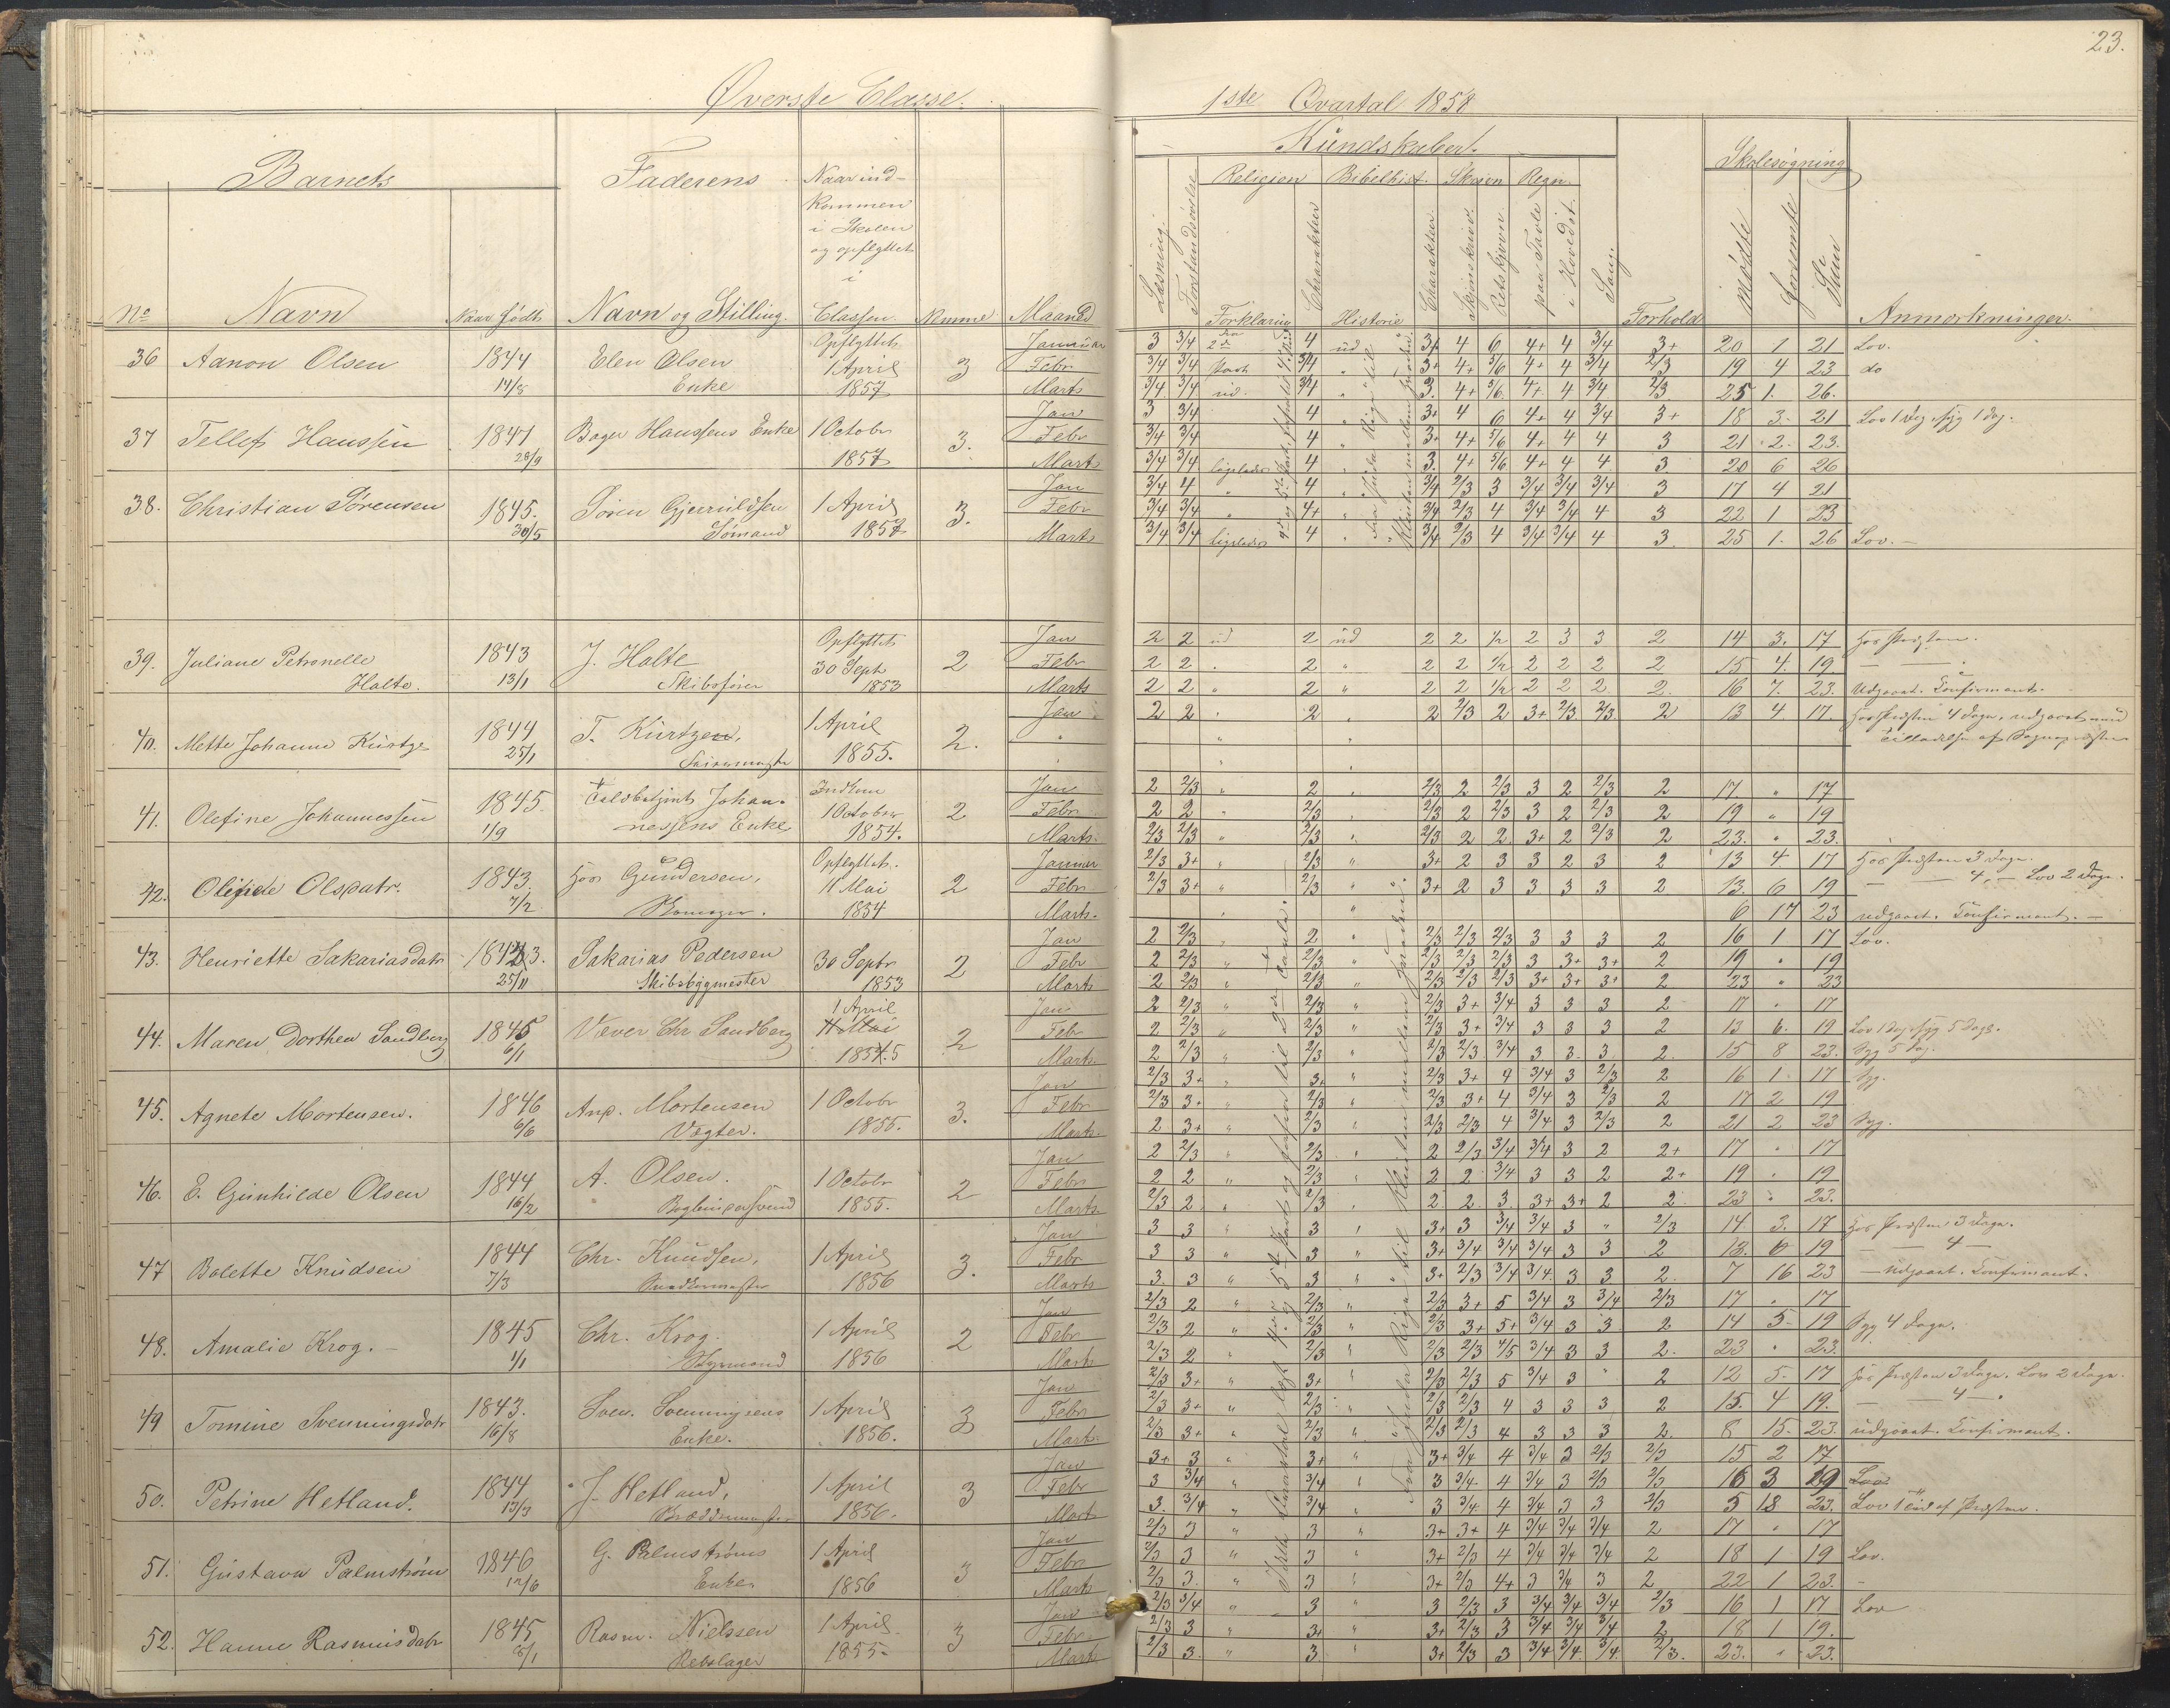 23.
Øverste Classe.
1ste Qvartal 1858
Barnets
Faderens
Naar ind-
kommen
i Skolen
og opflyttet
i
Classen.
Kundskaber.
Skolesøgning
Religion Bibelhist. Skrivn Regn.
No Navn Naar født Navn og Stilling. Nemme Maaned
Læsning. Forklaring Charakter Historie Charakter. paa Tavle i Hovedet. Sang. Forhold mødte forsømte Sum Anmærkninger.
36 Aanon Olsen 1844 14/8 Elen Olsen Enke Opflyttet 1 April 1857 3
Januar 3 3/4 4 ud 3+ 4 6 4+ 4 3/4 3+ 20 1 21 Lov.
Febr 3/4 3/4 Part 3/4 " 3+ 4+ 5/6 4+ 4 3/4 2/3 19 4 23 do
Marts 3/4 3/4 ud. 3/4 " 3. 4+ 5/6 4+ 4 3/4 2/3 25 1. 26.
37 Tellef Hanssen 1847 28/9 Bager Hanssens Enke 1 Octobr 1857 3.
Jan 3 3/4 4 " 3+ 4 6 4+ 4 3/4 3+ 18 3. 21 Lov 1 dag, syg 1 dag.
Febr 3/4 3/4 4 " 3+ 4+ 5/6 4+ 4 4 3 21 2. 23.
Mart 3/4 3/4 ligeledes 4 " 3. 4+ 5/6 4+ 4 4 3 20 6 26
38. Christian Sørensen 1845. 30/5 Sømand 1 April 1857 3.
Jan 3/4 4 " 4 " 3/4 2/3 3 3/4 3/4 3/4 3 17 4 21
Febr 3/4 3/4 " 4+ " 3/4 2/3 4 3/4 3/4 4 3 22 1 23
Marts 3/4 3/4 ligeledes 4 " 3/4 2/3 4 3/4 3/4 4 3. 25 1. 26 Lov. –
39. Juliane Petronelle Holte. 1843 13/1 J. Holte Skibsfører Opflyttet 30 Sept 1853 2
Jan 2 2 ud 2 ud 2 2 1/2 2 3 3 2 14 3. 17 Hos Præsten.
Febr 2 2 " 2 " 2 2 1/2 2 2 2 2 15 4. 19 — — "
Marts 2 2 " 2 " 2 2 1/2 2 2 2. 2. 16 7. 23. Udgaaet. Confirmant.
40. Mette Johanne Kürtze 1844 25/1 T. Kürtzen, 1 April 1855. 2.
Jan 2 2 " 2 " 2 2/3 2 3+ 2/3 2/3 2 13 4 17. Hos Præsten 4 dage, udgaaet med
Tilladelse af Sognepræsten
41. Olefine Johannessen 1845. 1/9 Johannessens Enke Indkom 1 October 1854. 2
Jan 2 2/3 " 2 " 2/3 2 2/3 3 2 2/3 2 17 " 17
Febr 2 2 " 2/3 " 2/3 2 2/3 3 2 2/3 2 19 " 19
Marts. 2/3 2/3 " 2/3 " 2/3 2 2 3+ 2 2/3 2 23. " 23.
42. Olsdatr. 1843. 7/2 Hos Gundersen, Opflyttet. 11 Mai 1854 2
Januar 2/3 3+ " 2/3 " 3+ 2 3 3 2 3 2 13 4 17 Hos Præsten 3 dage.
Febr 2/3 3+ " 2/3 " 3+ 2 3 3 3 3 2 13 6 19 — — 4, – Lov 2 dage.
Marts. 6 17 23 udgaaet. Confirmant. –
43. Henriette Sakariasdatr 1843. 25/11 Sakarias Pedersen Skibsbygmester 30 Septr 1853 2
Jan 2 2/3 " 2 " 2/3 2/3 2/3 3 3 3 2 16 1 17 Lov.
Febr 2 2/3 " 2/3 " 2/3 2/3 2/3 3 3+ 3+ 2 19 " 19
Marts 2 2/3 " 2/3 " 2/3 2/3 2/3 3+ 3+ 3+ 2 23 " 23
44. Maren Dorthea Sandberg 1845 6/1 Væver Chr Sandberg 1 April 11 Mai 1855 2
Jan 2 2/3 " 2/3 " 2/3 3+ 3/4 3 3 3 2 17 " 17
Febr 2 2/3 " 2/3 " 2/3 3+ 3/4 3 3 3 2 13 6. 19 Lov 1 dag, syg 5 dage.
Marts. 2 2/3 " 2/3 " 2/3 2/3 3/4 3 3. 3 2. 15 8 23. Syg 5 dag.
45. Agnete Mortensen. 1846 6/6 Anp. Mortensen Vægter. 1 Octobr 1855. 3.
Jan 2/3 3+ " 3+ " 2/3 3+ 4 3/4 3 2/3 2 16 1 17 Syg.
Febr 2/3 3+ " 2/3 " 2/3 3+ 4 3/4 3 2/3 2 17 2 19
Marts. 2 3+ " 2/3 " 2/3 2/3 4 3/4 3 2/3 2 21 2 23 Syg.
46. E. Gunhilde Olsen 1844 16/2 A. Olsen. Bogbindersvend 1 Octobr 1855. 2
Jan 2 2/3 " 2/3 " 2 2/3 3/4 3/4 3 2 2+ 17 " 17
Febr 2 2 " 2/3 " 2 2 3/4 3 3 2 2+ 19 " 19
Marts. 2/3 2 " 2/3 " 2. 2. 3. 3+ 3+ 2 2. 23 " 23.
47 Bolette Knudsen 1844 7/3 Chr. Knudsen, Snedkermester 1 April 1856 3.
Jan 3 3 " 3 " 3+ 3 3/4 3/4 3 " 2/3 14 3. 17 Hos Præsten 3 dage.
Febr 3 3 " 3 " 3+ 3/4 3/4 3/4 3 3 2 13. 6 19 — — 4 –
Marts 3. 3 " 3 " 3+ 2/3 3/4 3/4. 3 3 2. 7 16 23 – Udgaaet. Confirmant.
48. Amalie Krog. – 1845 1/1 Chr. Krog. Styrmand 1 April 1856 2
Jan 2/3 2 " 2/3 " 2/3 3+ 5 3/4 3 3/4 2/3 17 " 17
Febr 2/3 2 " 2/3 " 2/3 3+ 5+ 3/4 3 3 2 14 5– 19 Syg 4 dage.
Marts 2/3 2 " 2/3 " 2/3 2/3 4/5 3/4 3 3 2. 23 " 23.
49 Tomine Svenningsdatr 1843. 16/8 Sven. Svenningsens Enke. 1 April 1856. 3
Jan 2/3 3+ " 3+ " 2/3 2/3 5 3/4 3 " 2 12 5. 17 Hos Præsten 3 dage. Lov 2 dage.
Febr 2/3 3+ " 2/3 " 2/3 2/3 4 3 3 3 2 15. 4 19. — — 4 – "
Marts. 2/3 3+ " 2/3 " 2/3 2/3 4 3 3 3 2. 8 15. 23. udgaaet. Confirmant.
50. Petrine Hetland. 1844 13/3 J. Hetland, 1 April 1856. 3
Jan 3+ 3 " 3+ " 3+ 3/4 4 3/4 3 2/3 2/3 15 2 17
Febr 3 3/4 " 3/4 " 3 3/4 4 3/4 3 2/3 2/3 16 3 19 Lov.
Marts 3. 3/4 " 3/4 " 3 3/4 4 3/4 3 3 2/3 5 18 23. Lov af Præsten.
51. Gustava Palmstrøm 1846 12/6 G. Palmstrøms Enke. 1 April 1856 3
Jan 2/3 3 " 3 " 3+ 3+ 4 3/4 3/4 3/4 2 17 " 17
Febr 2/3 3 " 3 " 3+ 2/3 4 3/4 3/4 3/4 2 18 1 19 Lov.
Marts 2/3 3. " 3 " 3+ 2/3 4+ 3 3/4 3 2 22 1 23. –
52. Hanne Rasmusdatr 1845 8/1 Rasm. Nielssen Rebslager 1 April 1855. 3
Jan 2/3 3/4 " 3 " 3 2/3 3 3/4 3/4 3/4 2/3 16 1 17 Lov
Febr 2/3 3 " 3+ " 3+ 2/3 3 3/4 3/4 3/4 2 18 1 19.
Marts 2/3 3. " 3. " 3+ 2/3 3 3/4 3/4 3/4. 2/3. 23. " 23.